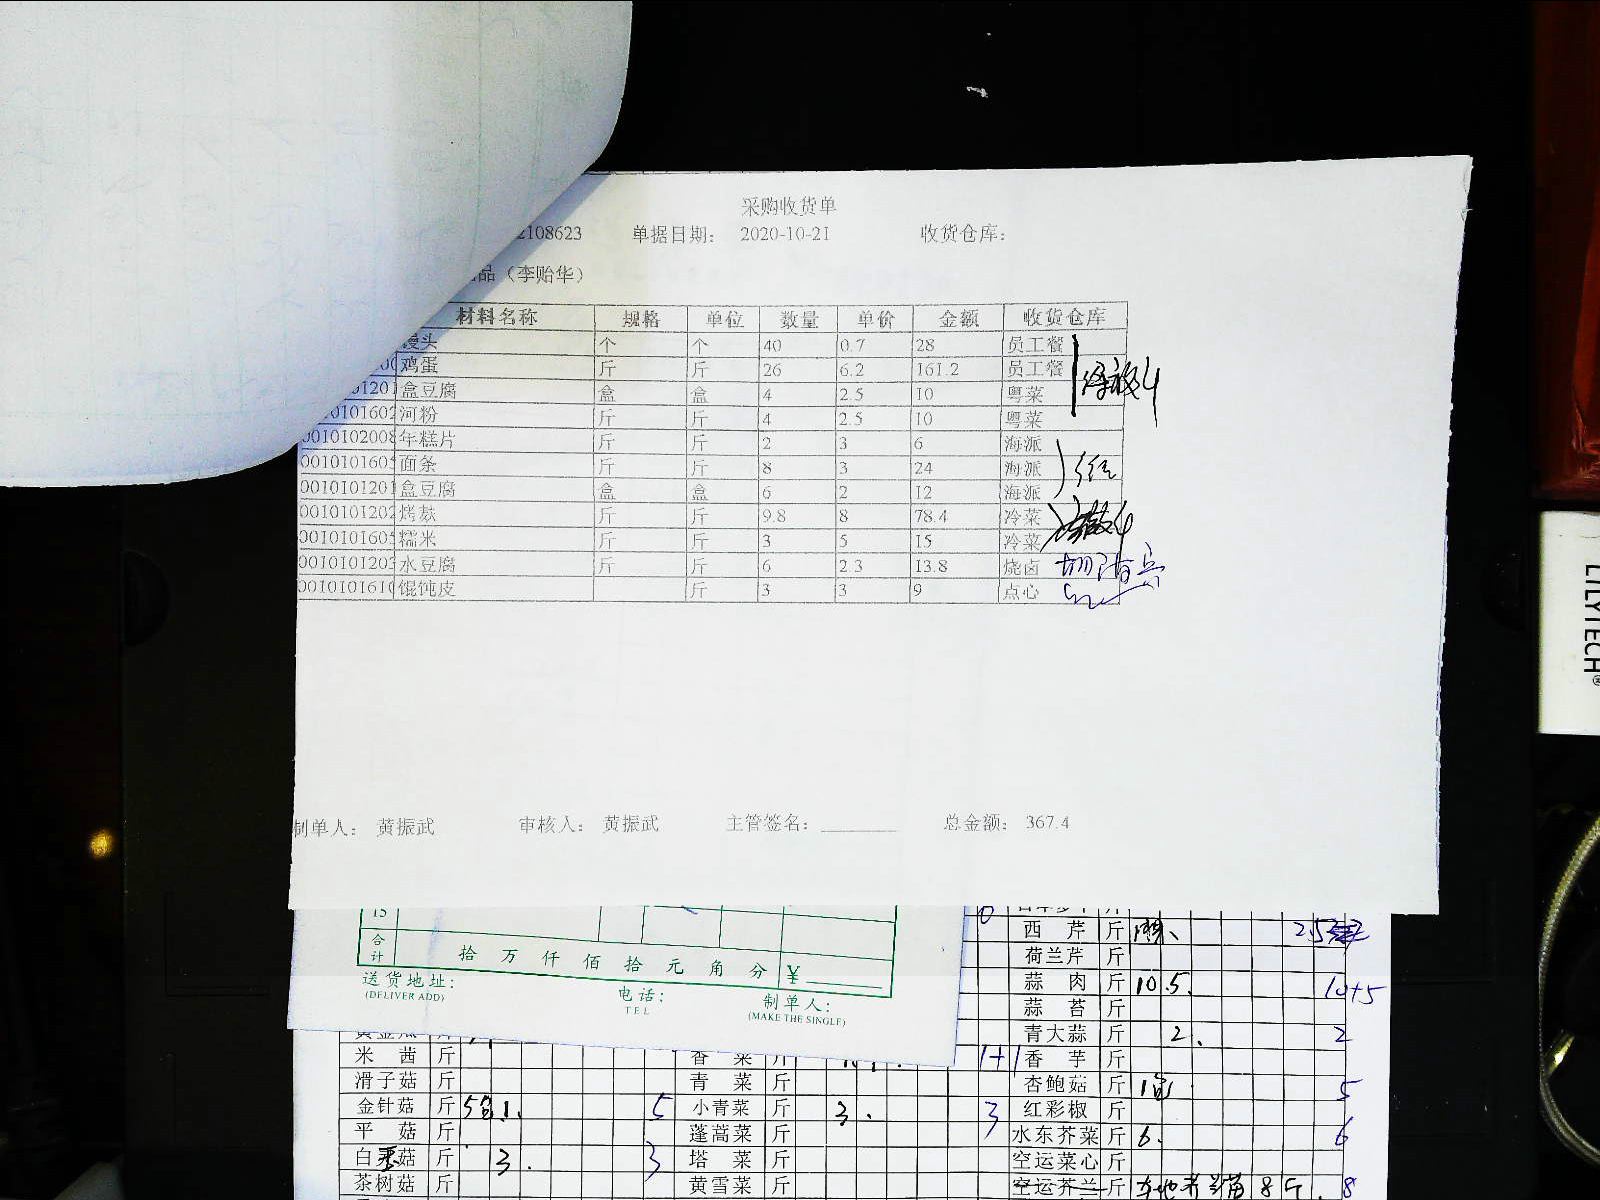 采购收货单
2108623 单据日期: 2020-10-21 收货仓库:
品（李贻华）
材料名称 规格 单位 数量 单价 金额 收货仓库
馒头 个 个 40 0.7 28 员工餐
鸡蛋 斤 斤 26 6.2 161.2 员工餐
01201 盒豆腐 盒 盒 4 2.5 10 粤菜
0101602 河粉 斤 斤 4 2.5 10 粤菜
0010102008 年糕片 斤 斤 2 3 6 海派
001010160 面条 斤 斤 8 3 24 海派
0010101201 盒豆腐 盒 盒 6 2 12 海派
0010101202 烤麸 斤 斤 9.8 8 78.4 冷菜
001010160 糯米 斤 斤 3 5 15 冷菜
001010120 水豆腐 斤 斤 6 2.3 13.8 烧卤
001010161 馄饨皮 斤 3 3 9 点心
制单人: 黄振武 审核人: 黄振武 主管签名: 总金额: 367.4
15
合计 拾 万 仟 佰 拾 元 角 分 ¥
送货地址:
(DELIVER ADD)
电话:
TEL
制单人:
(MAKE THE SINGLE)
西芹 斤
荷兰芹 斤
蒜肉 斤 10.5. 10+5
蒜苔 斤
青大蒜 斤 2. 2
米茜 斤 香菜 斤 1+1 香芋 斤
滑子菇 斤 青菜 斤 杏鲍菇 斤 5
金针菇 斤 5 小青菜 斤 3. 3 红彩椒 斤
平菇 斤 蓬蒿菜 斤 水东芥菜 斤 6. 6
白玉菇 斤 3. 3 塔菜 斤 空运菜心 斤
茶树菇 斤 黄雪菜 斤 空运芥兰 斤 8斤. 8
LILYTECH®